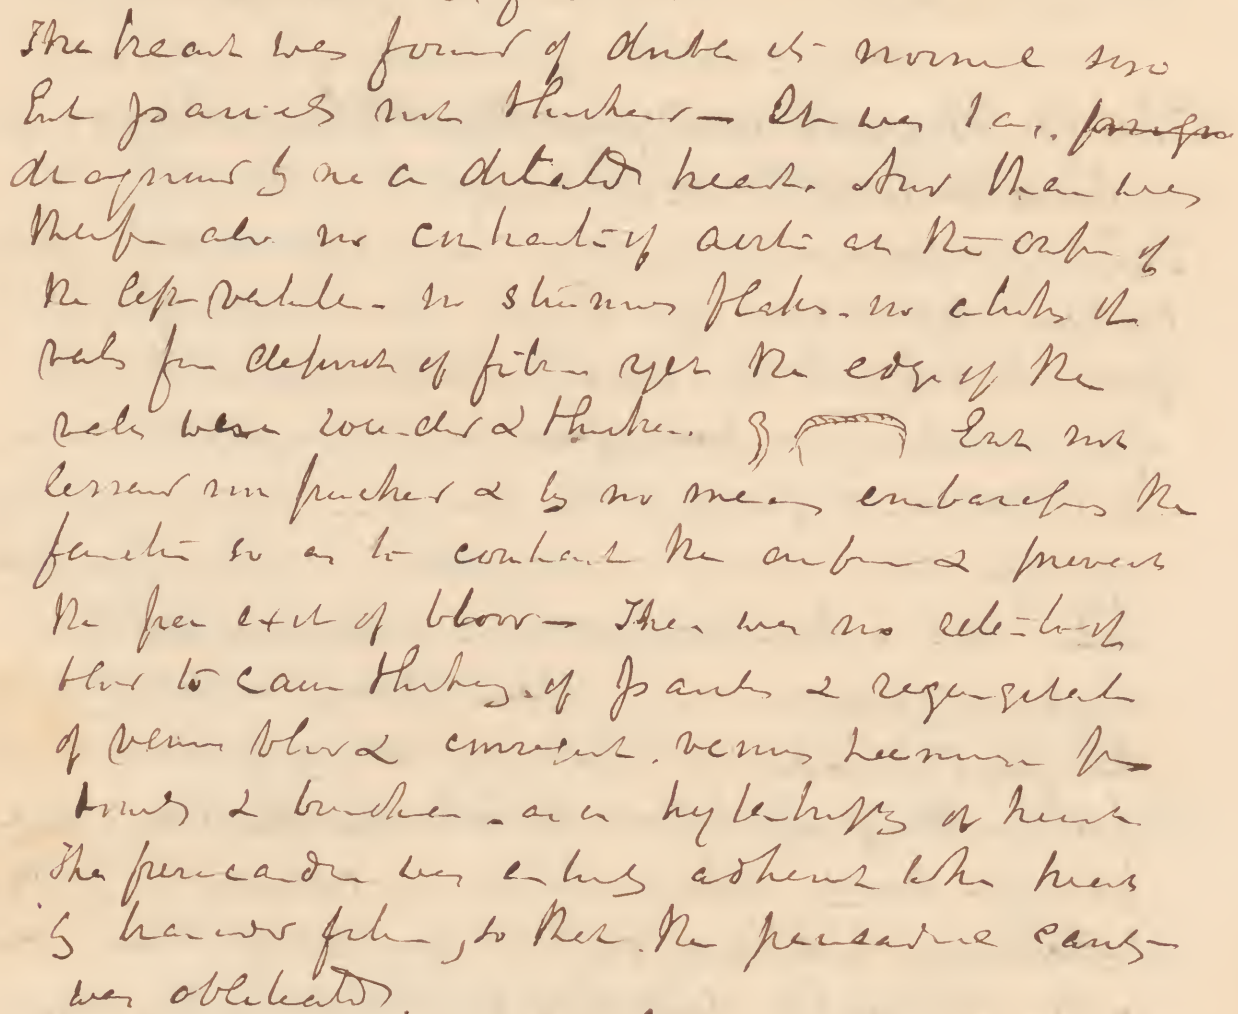 The heart was found of double its normal size
But parietes not thickened – It was
diagnosed by me a dilated heart. And there was
therefore also no contraction of aorta at the orifice of
the left ventricle – no flakes – no
valves from deposit of fibrin yet the edge of the
valves were rounded & thicken. But not
lessened nor puckered & by no means embarassing the
function so as to contract the orifice & prevent
the free exit of blood – There was no retention of
blood to cause thickening of parietes & regurgitation
of venous blood & consequent venous from
& bronchia – as in hypertrophy of heart
The pericardium was entirely adherent to the heart
by fibrin, so that the pericardial cavity
was obliterated